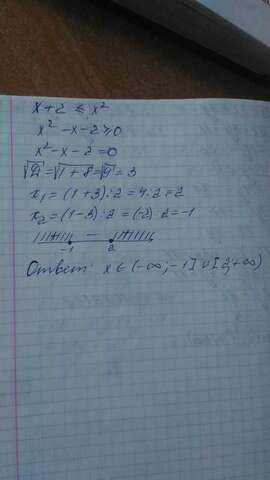 x+2 ≤ x²
x²-x-2≥0
x²-x-2=0
√Д=√1+8=√9=3
x₁=(1+3):2=4:2=2
x₂=(1-3):2=(-2):2=-1
- -1 2
Ответ: x∈(-∞;-1]∪[2;+∞)